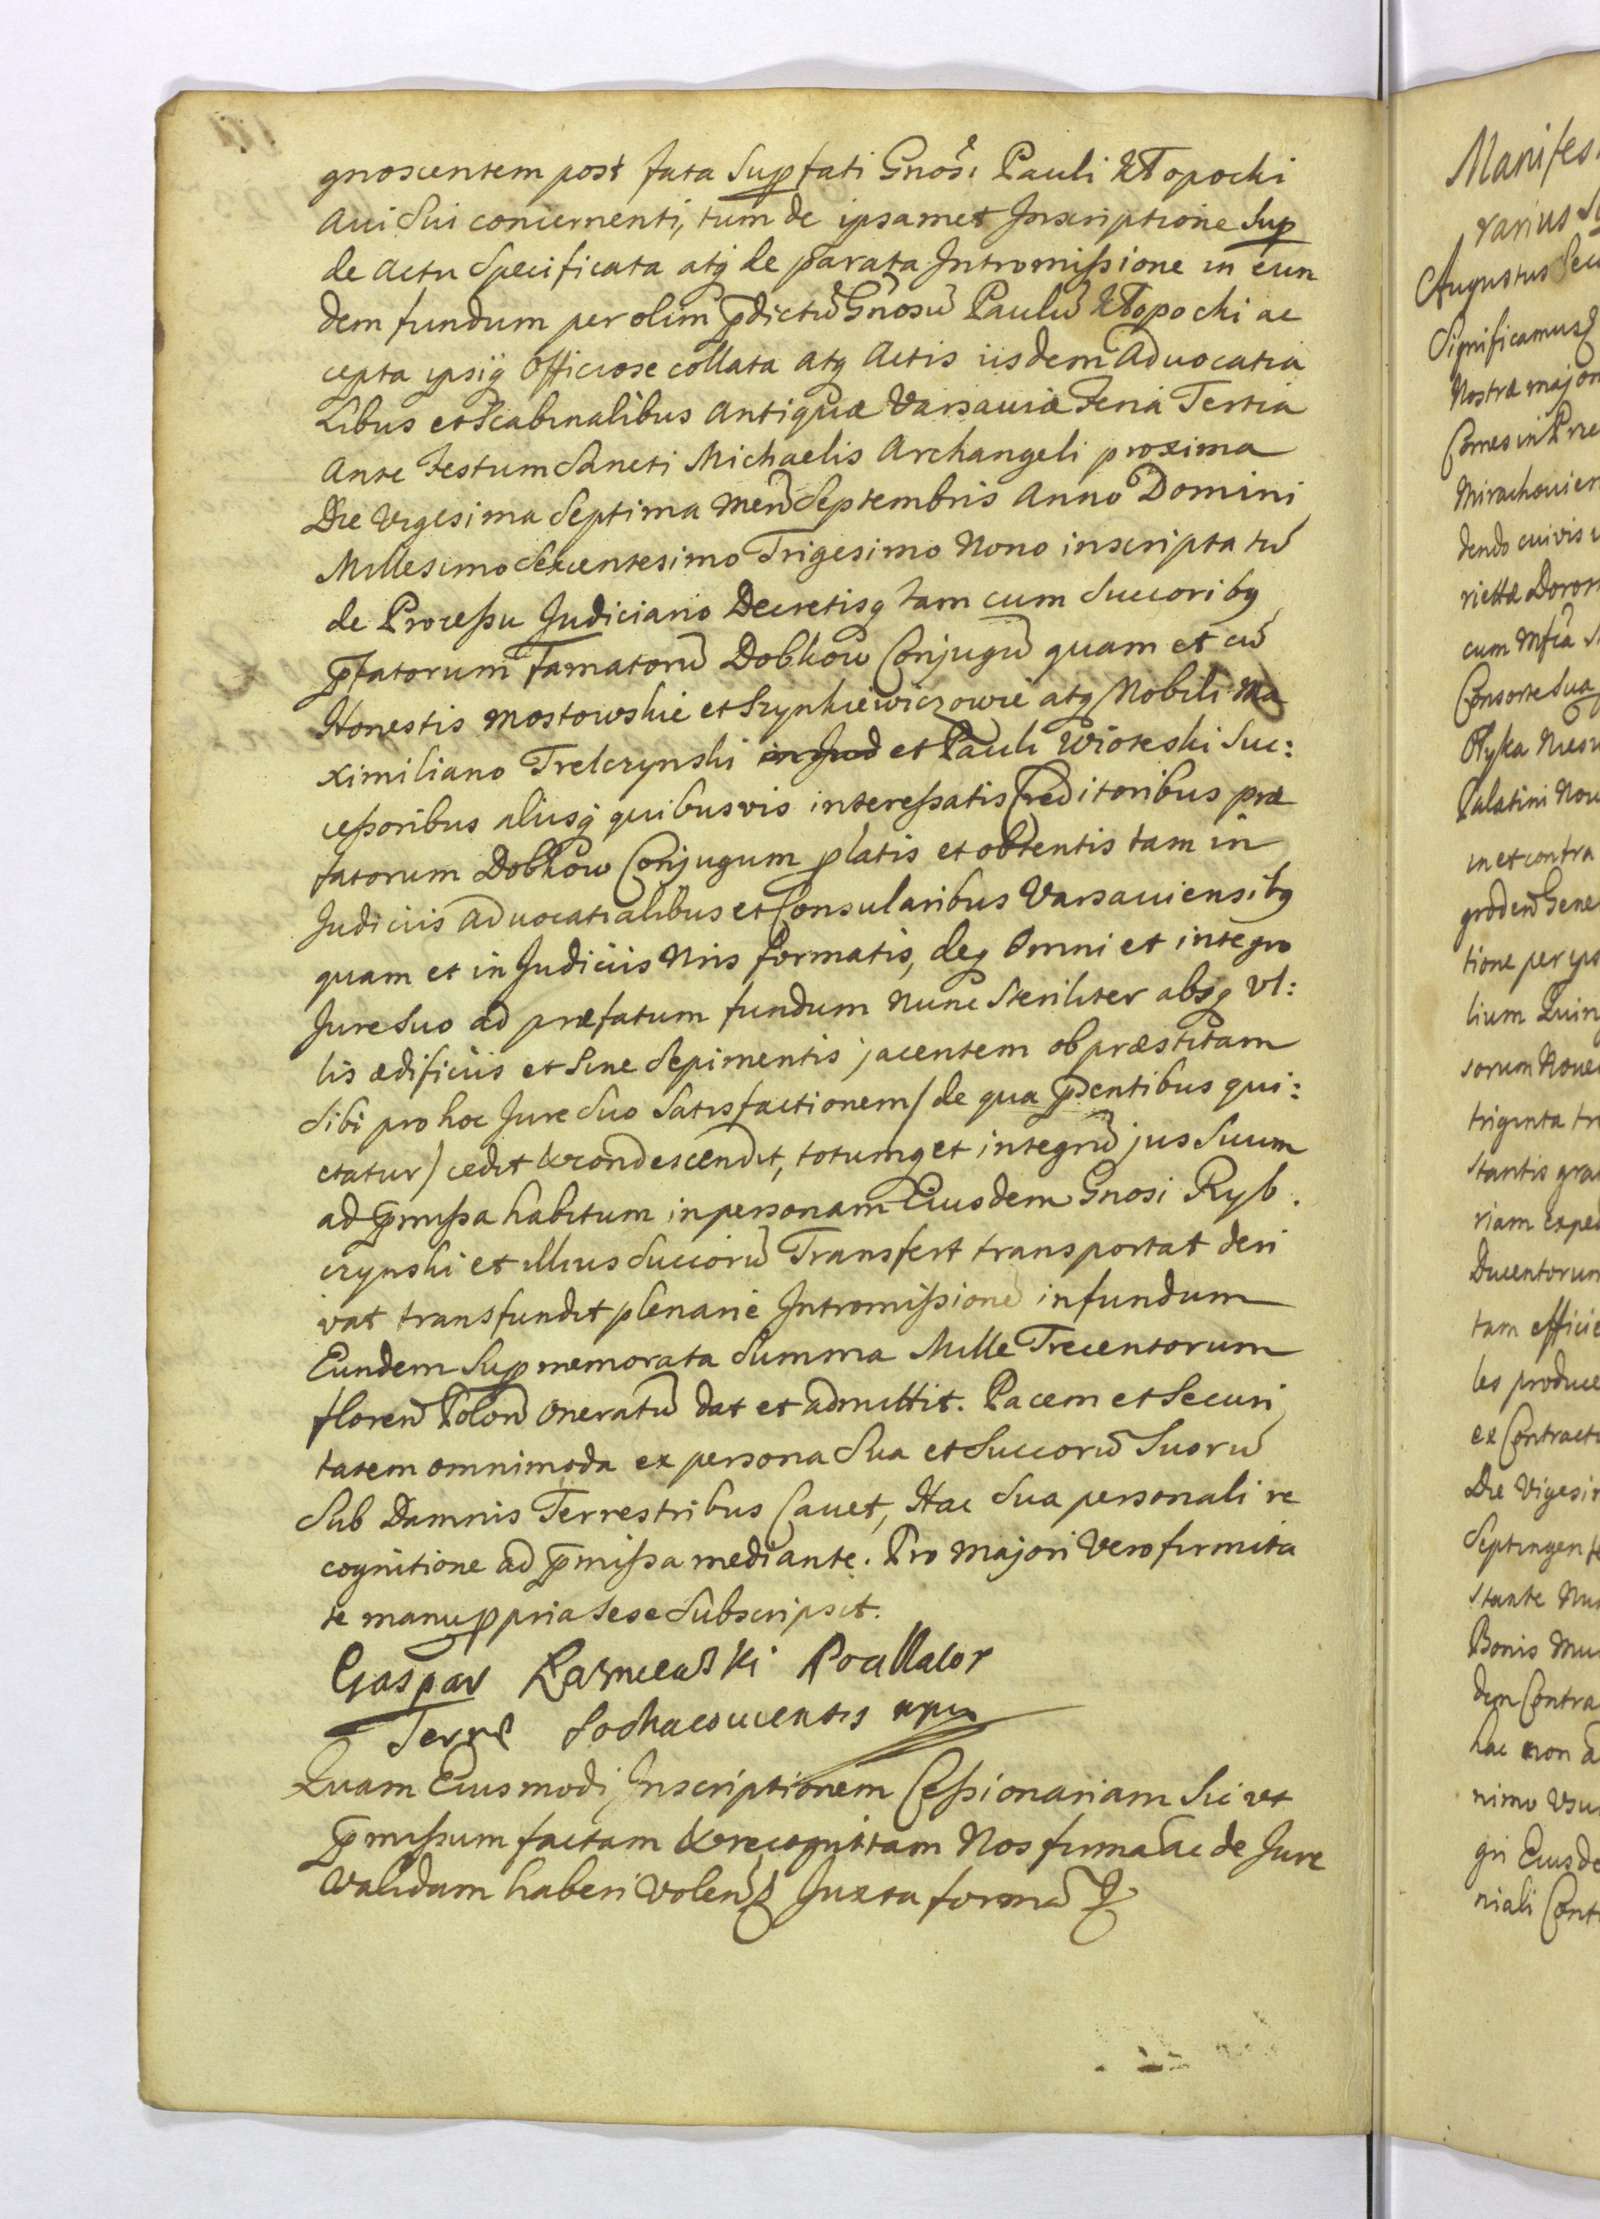 gnoscentem post fata Suprafati Gnosi Pauli Kłopocki
Avi Sui concernenti, tum de ipsamet Inscriptione Sup
de Actu Specificata atq de parata Intromissione in eun
dem fundum per olim pdictū Gnosū Paulū Kłopocki ac
cepta ipsiq Officiose collata atq Actis iisdem Advocatia
libus et Scabinalibus Antiquæ Varsaviæ Feria Tertia
Ante Festum Sancti Michaelis Archangeli proxima
Die Vigesima Septima Men̄ Septembris Anno Domini
Millesimo Sexcentesimo Trigesimo Nono inscripta tū
de Processu Judiciario Decretisq tam cum Succoribq
pfatorum Famatorū Dobkow Conjugū quam et cū
Honestis Mostowskie et Szynkiewiczowie atq Nobili Ma
ximiliano Trelczynski in Jud et Pauli Wioteski Suc:
cessoribus aliisq quibusvis interessatis Creditoribus præ
fatorum Dobkow Conjugum platis et obtentis tam in
Judiciis Advocatialibus et Consularibus Varsaviensibq
quam et in Judiciis Nris formatis, deq Omni et integro
Jure Suo ad præfatum fundum Nunc Steriliter absq Vl:
lis ædificiis et Sine Sepimentis jacentem ob præstitam
Sibi pro hoc Jure Suo Satisfactionem / de qua pentibus qui:
etatur / cedit & condescendit, totumq et integrū jus Suum
ad pmissa habitum in personam Eiusdem Gnosi Ryb.
czynski et illius Succorū Transfert transportat deri
vat transfundit plenarie Intromissionē in fundum
Eundem Sup memorata Summa Mille Trecentorum
floren̄ Polon̄ Oneratū dat et admittit. Pacem et Securi
tatem omnimoda ex persona Sua et Succorū Suorū
Sub Damnis Terrestribus Cavet, Hac Sua personali re
cognitione ad pmissa mediante. Pro Majori Vero firmita
te manu ppria Sese Subscripsit.
Gaspar Pocillator
Terræ Sochacoviensis mpp
Quam Eiusmodi Inscriptionem Cessionariam Sic ut
pmissum factam & recognitam Nos firmā ac de Jure
Validam haberi Volen̄ Juxta formā
Manifes
Augustus Secu
Significamus
Nostra major
Comes in Prze
Mirachovien
dendo cuivis
cum
Consorte Sua
Palatini Nov
in et contra
groden̄ Gene
tione per ips
lium Quin
sorum Nove
triginta tr
stantis gra
riam Exped
Ducentorum
tam efficie
les produce
ex Contractu
Die Vigesim
Septingente
stante Nu
Bonis Mu
dem Contra
hac non a
nimo Usu
gri Eiusde
niali Cont